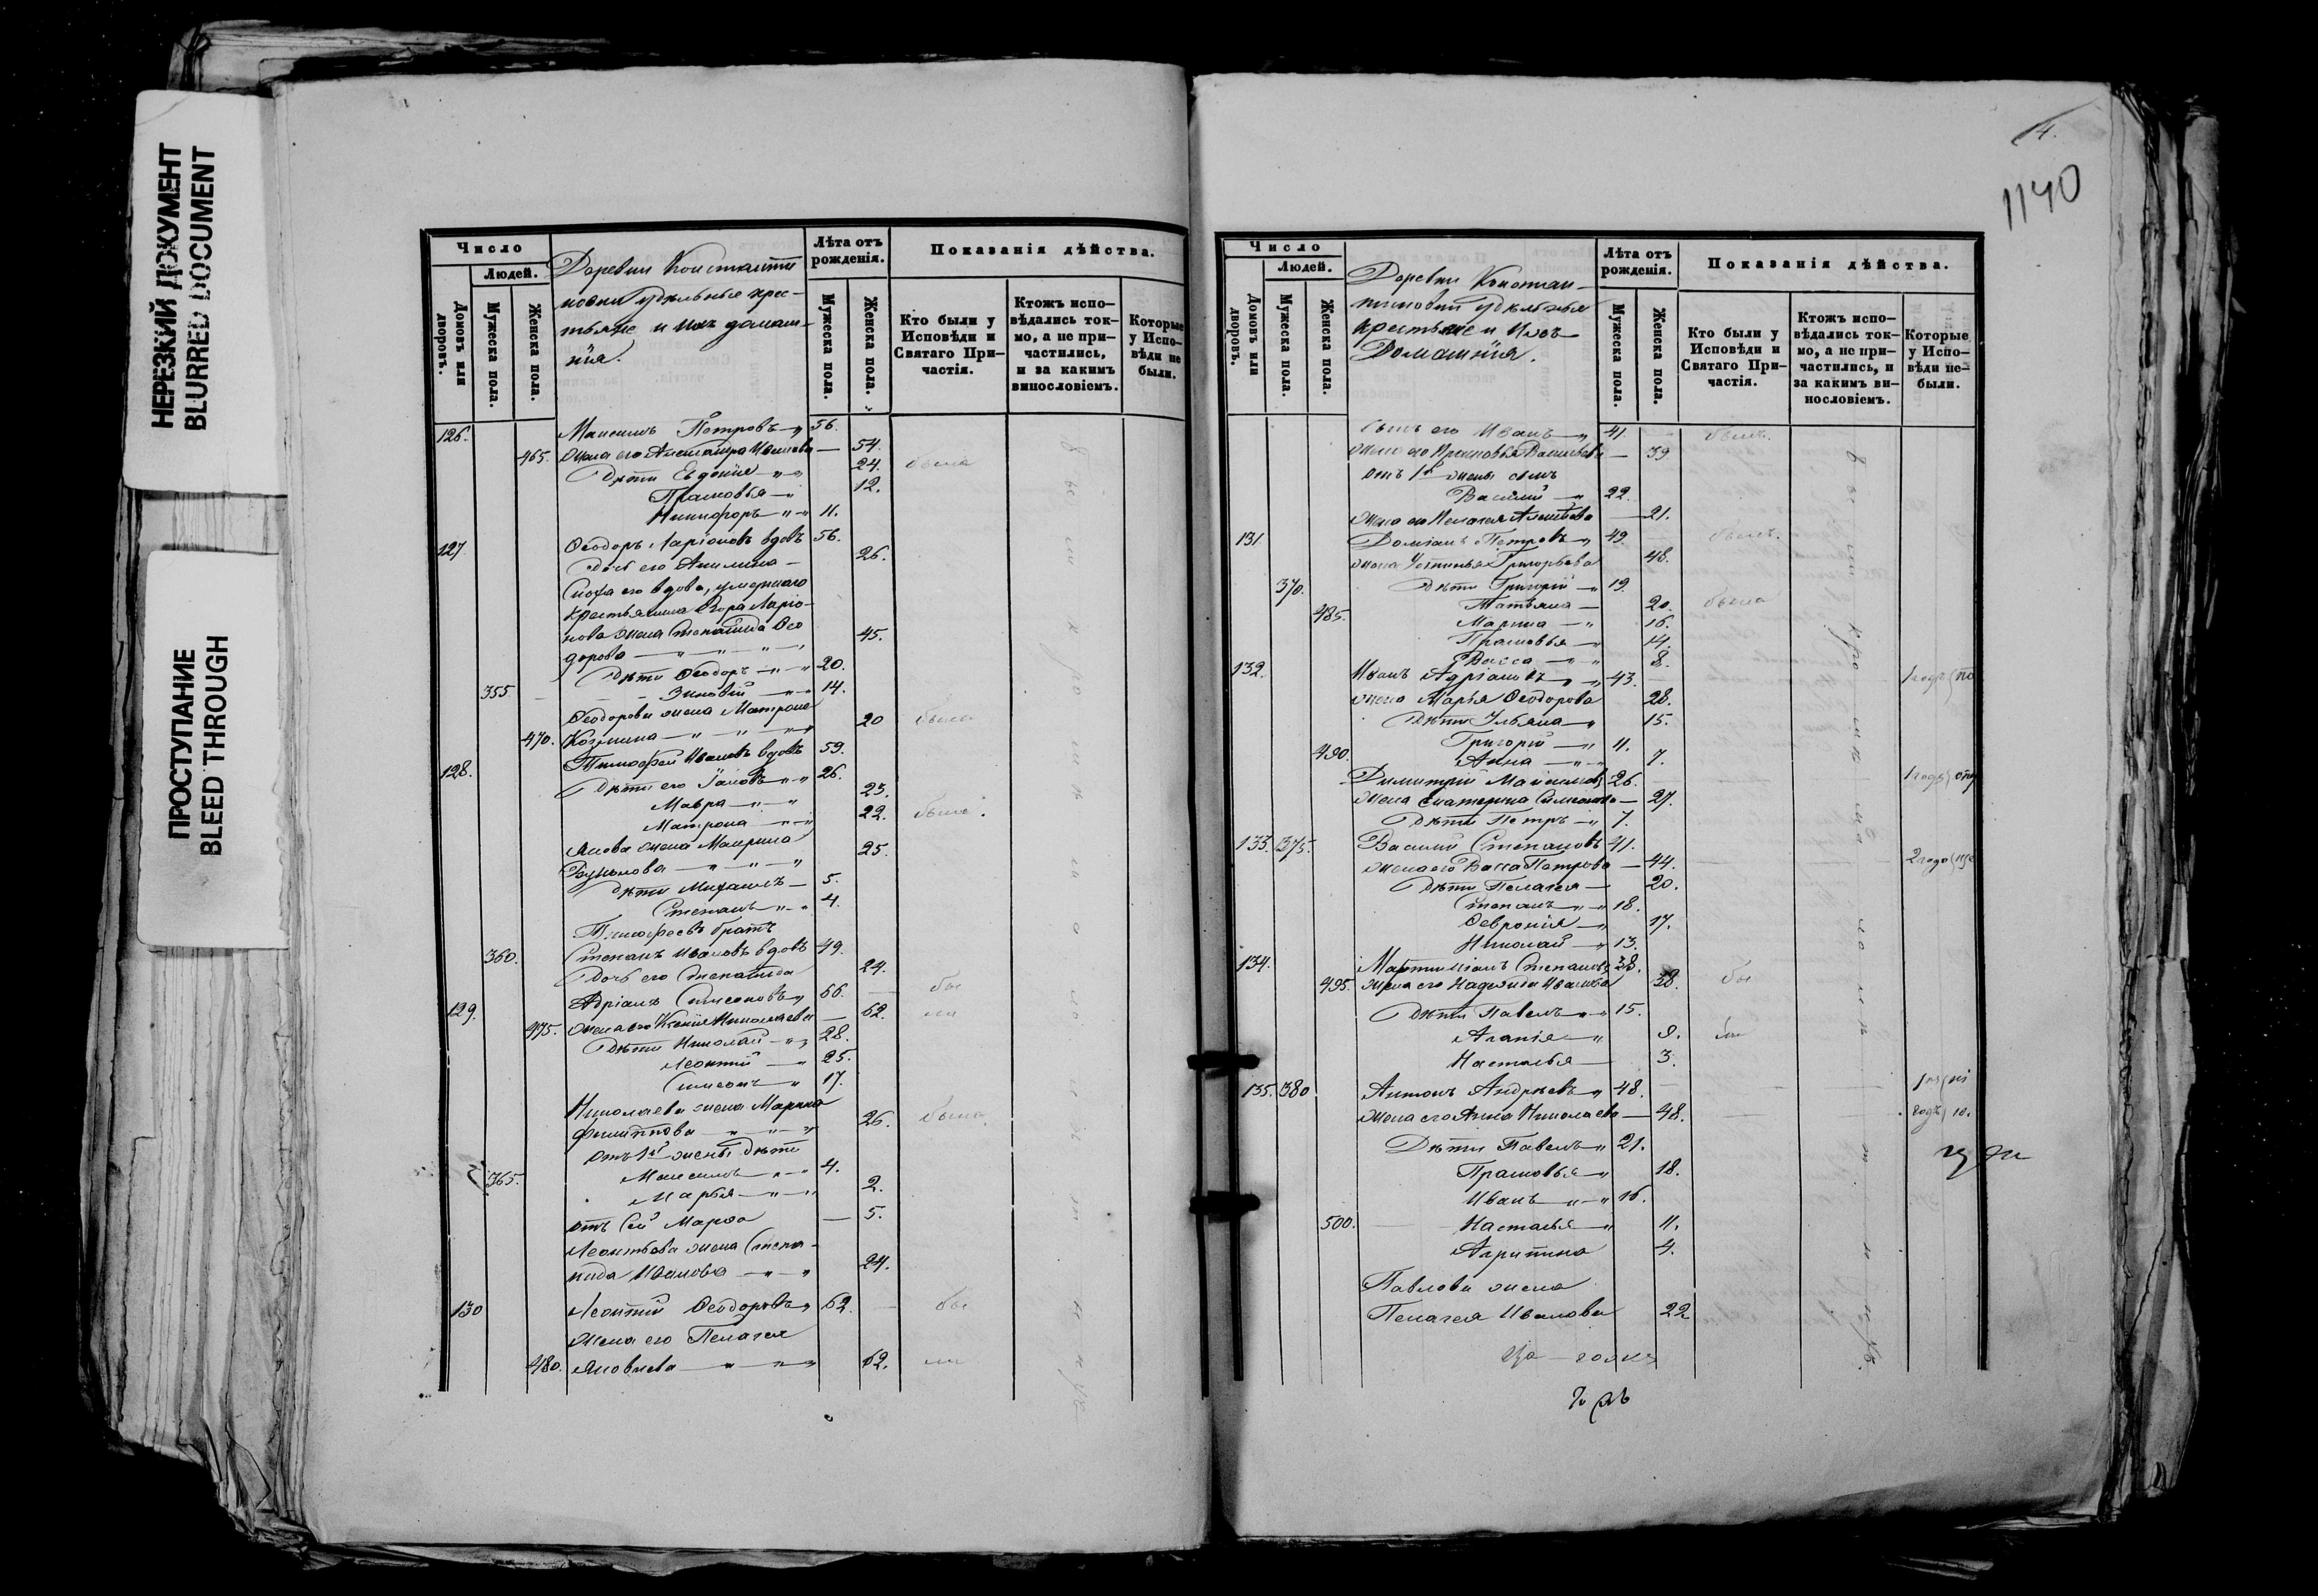 НЕРЕЗКИЙ ДОКУМЕНТ
BLURRED DOCUMENT
ПРОСТУПАНИЕ
BLEED THROUGH
Число
Людей.
Домовъ или дворовъ.
Мужеска пола.
Женска пола.
Деревни Константи
новки удѣльныя крес-
тьяне и ихъ домаш-
нія.
Лѣта отъ рожденія.
Мужеска пола.
Женска пола.
Показанія дѣйства.
Кто были у Исповѣди и Святаго При-частія.
Ктожъ испо-вѣдались ток-мо, а не при-частились, и за какимъ винословіемъ.
Которые у Испо-вѣди не были.
126. Максимъ Петровъ 56.
465. жена его Александра Иванова 54.
Дѣти Евдокія 24. была
Прасковья 12.
Никифоръ 11.
127. Ѳеодоръ Ларіоновъ вдовъ 56.
Дочь его Акилина 26.
Сноха его вдова, умершаго
крестьянина Егора Ларіо-
нова жена Степанида Ѳео
дорова 45.
Дѣти Ѳеодоръ 20.
355. Зиновій 14.
Ѳеодорова жена Матрона
470. Козмина 20 была
128. Тимофей Ивановъ вдовъ 59.
Дѣти его Іаковъ 26.
Мавра 23.
Матрона 22. была.
Якова жена Маврина
25.
Дѣти Михаилъ 5.
Степанъ 4.
Тимофеевъ братъ
360. Степанъ Ивановъ вдовъ 49.
Дочь его Степанида 24.
129. Адріанъ Симеоновъ 66. бы
475. жена его Ксенія Николаева 62. ли
Дѣти Николай 28.
Леонтій 25.
Симеонъ 17.
Николаева жена Марина
Филиппова 26. была
отъ 1й жены дѣти
365. Максимъ 4.
Марья 2.
отъ сей Марѳа 5.
Леонтьева жена Степа-
нида Иванова 24.
130 Леонтій Ѳеодоровъ 62. бы
жена его Пелагея
480. Яковлева 62. ли
4.
1140
Число
Людей.
Домовъ или дворовъ.
Мужеска пола.
Женска пола.
Деревни Констан-
тиновки удѣльныя
крестьяне и ихъ
Домашнія.
Лѣта отъ рожденія.
Мужеска пола.
Женска пола.
Показанія дѣйства.
Кто были у Исповѣди и Святаго При-частія.
Ктожъ испо-вѣдались ток-мо, а не при-частились, и за какимъ ви-нословіемъ.
Которые у Испо-вѣди не-были.
сынъ его Иванъ 41. былъ.
жена его Прасковья Васильева 39
отъ 1й жены сынъ
Василій 22.
жена его Пелагея Алексѣева 21.
131 Доміанъ Петровъ 49. былъ.
жена Устинья Григорьева 48.
370. Дѣти Григорій 19.
485. Татьяна 20. была
Марина 16.
Прасковья 14.
Васса 8.
132. Иванъ Адріановъ 43. 1 годъ
жена Марья Ѳеодорова 28.
Дѣти Ульяна 15.
Григорій 11.
490. Анна 7.
Димитрій Максимовъ 26.
жена Екатерина Симеонова 27.
Дѣти Петръ 7.
133. 375. Василій Степановъ 41.
жена его Васса Петрова 44. 2 года
Дѣти Пелагея 20.
Степанъ 18.
Ѳевронія 17.
Николай 13.
134. Мартиніанъ Степановъ 38.
495. жена его Надежда Иванова 38. бы
Дѣти Павелъ 15.
Агапія 9. ли
Наталья 3.
135. 380 Антонъ Андреевъ 48.
жена его Анна Николаева 48. годъ
Дѣти Павелъ 21.
Прасковья 18.
Иванъ 16.
500. Наталья 11.
Агрипина 4.
Павлова жена
Пелагея Иванова 22